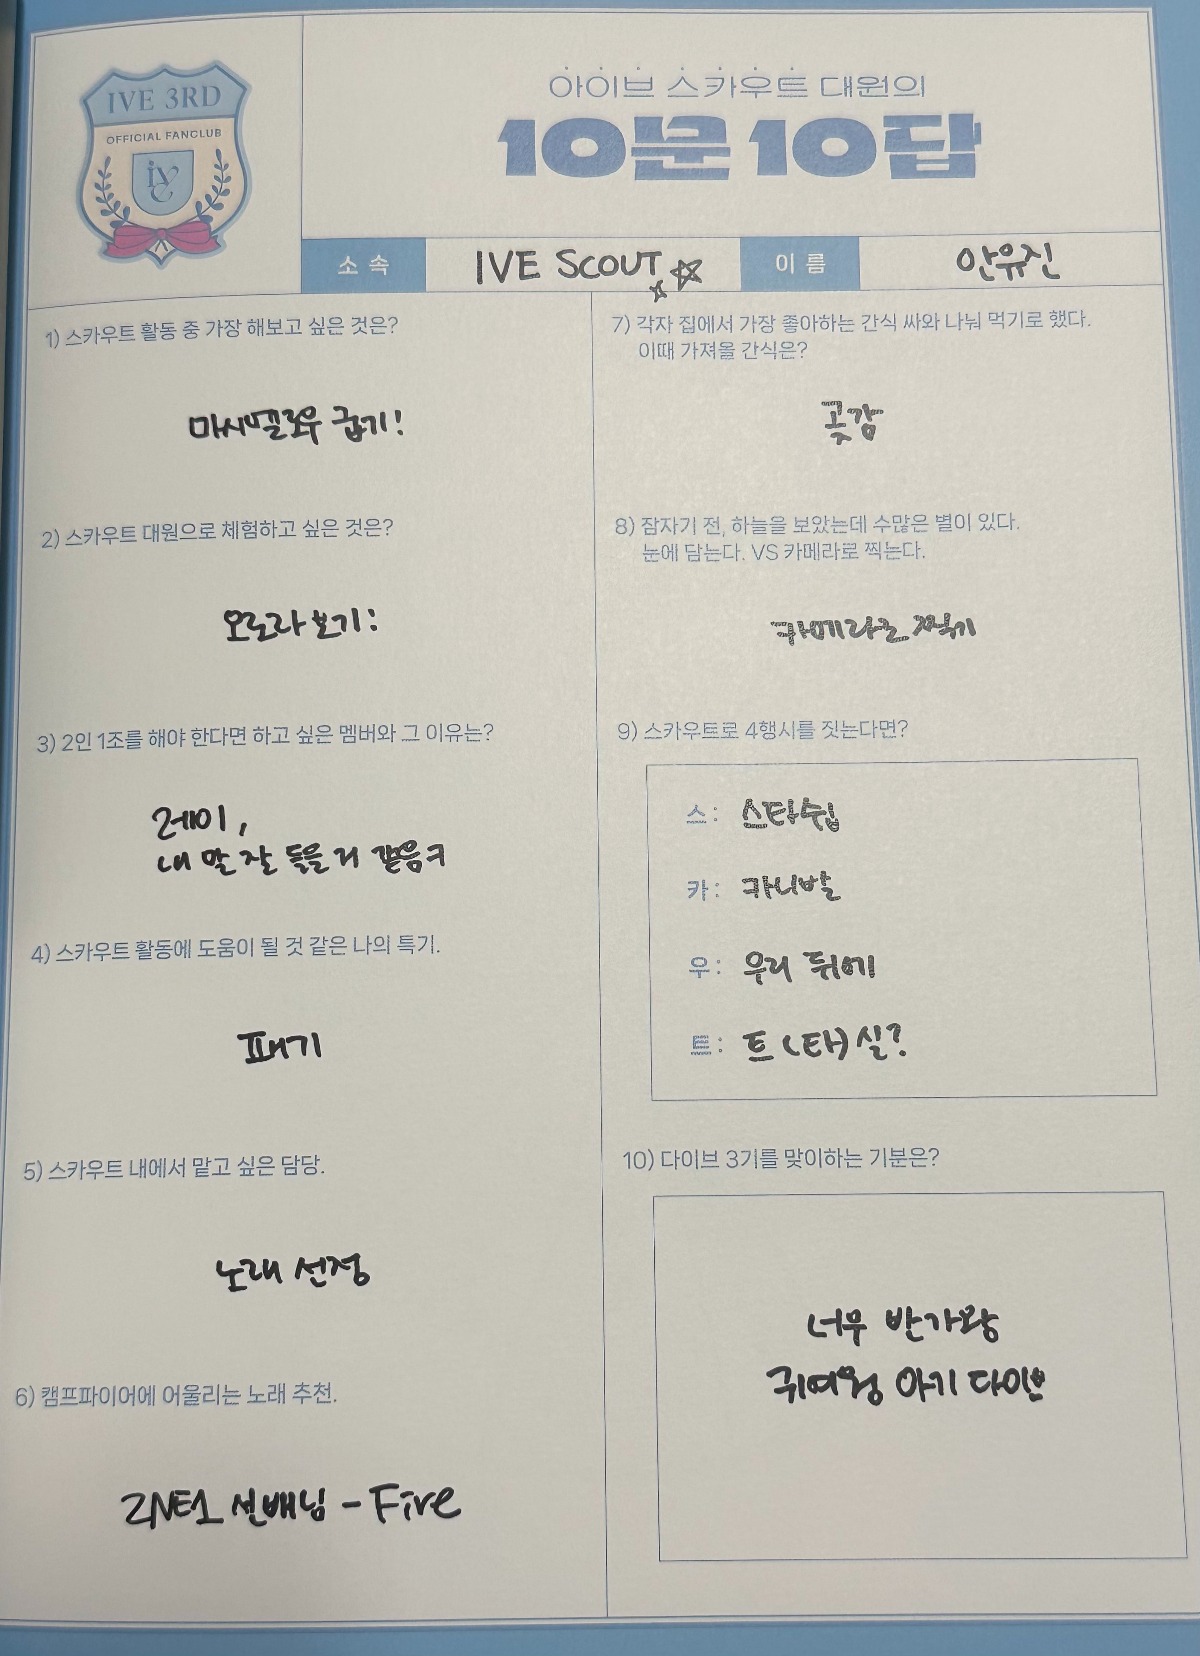 IVE 3RD
OFFICIAL FANCLUB
IVE
아이브 스카우트 대원의
10문 10답
소속
IVE SCOUT
이름
안유진
1) 스카우트 활동 중 가장 해보고 싶은 것은?
마시멜로우 굽기!
2) 스카우트 대원으로 체험하고 싶은 것은?
오로라 보기:
3) 2인 1조를 해야 한다면 하고 싶은 멤버와 그 이유는?
레이,
내 말 잘 들을 거 같음ㅋ
4) 스카우트 활동에 도움이 될 것 같은 나의 특기.
패기
5) 스카우트 내에서 맡고 싶은 담당.
노래 선정
6) 캠프파이어에 어울리는 노래 추천.
2NE1 선배님 - Fire
7) 각자 집에서 가장 좋아하는 간식 싸와 나눠 먹기로 했다.
이때 가져올 간식은?
곶감
8) 잠자기 전, 하늘을 보았는데 수많은 별이 있다.
눈에 담는다. VS 카메라로 찍는다.
카메라로 찍기
9) 스카우트로 4행시를 짓는다면?
스: 스타쉽
카: 카니발
우: 우리 뒤에
트: 트(타)실?
10) 다이브 3기를 맞이하는 기분은?
너무 반가왕
귀여웡 아기 다이브